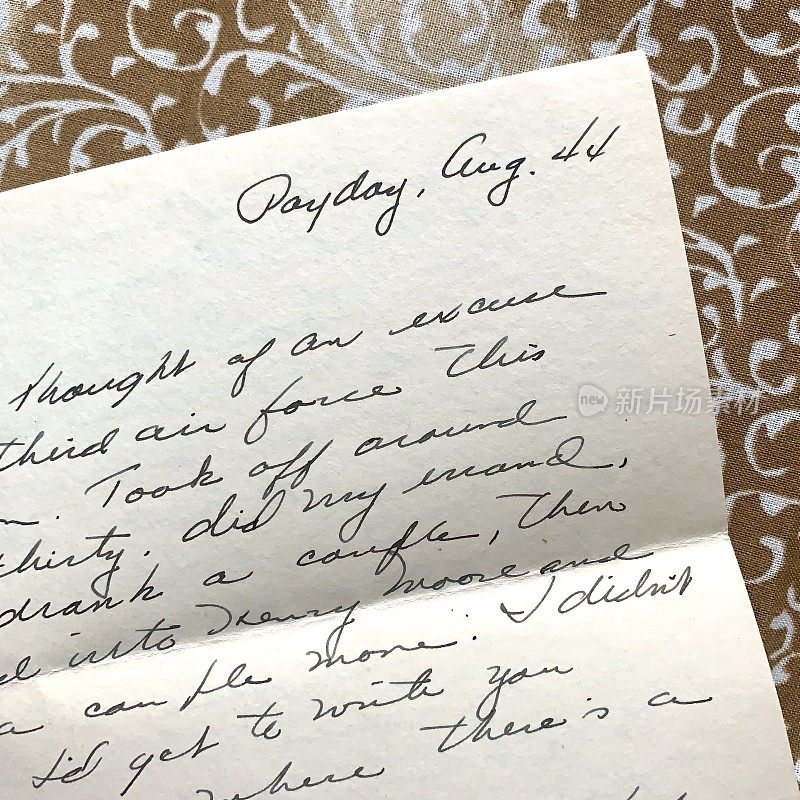 Payday, Aug. 44
thought of an excuse
third air force this
Took off around
thirty. did my errand,
drank a couple, then
into Henry Moore and
a couple more. I didn't
I'd get to write you
where there's a
new 新片场素材